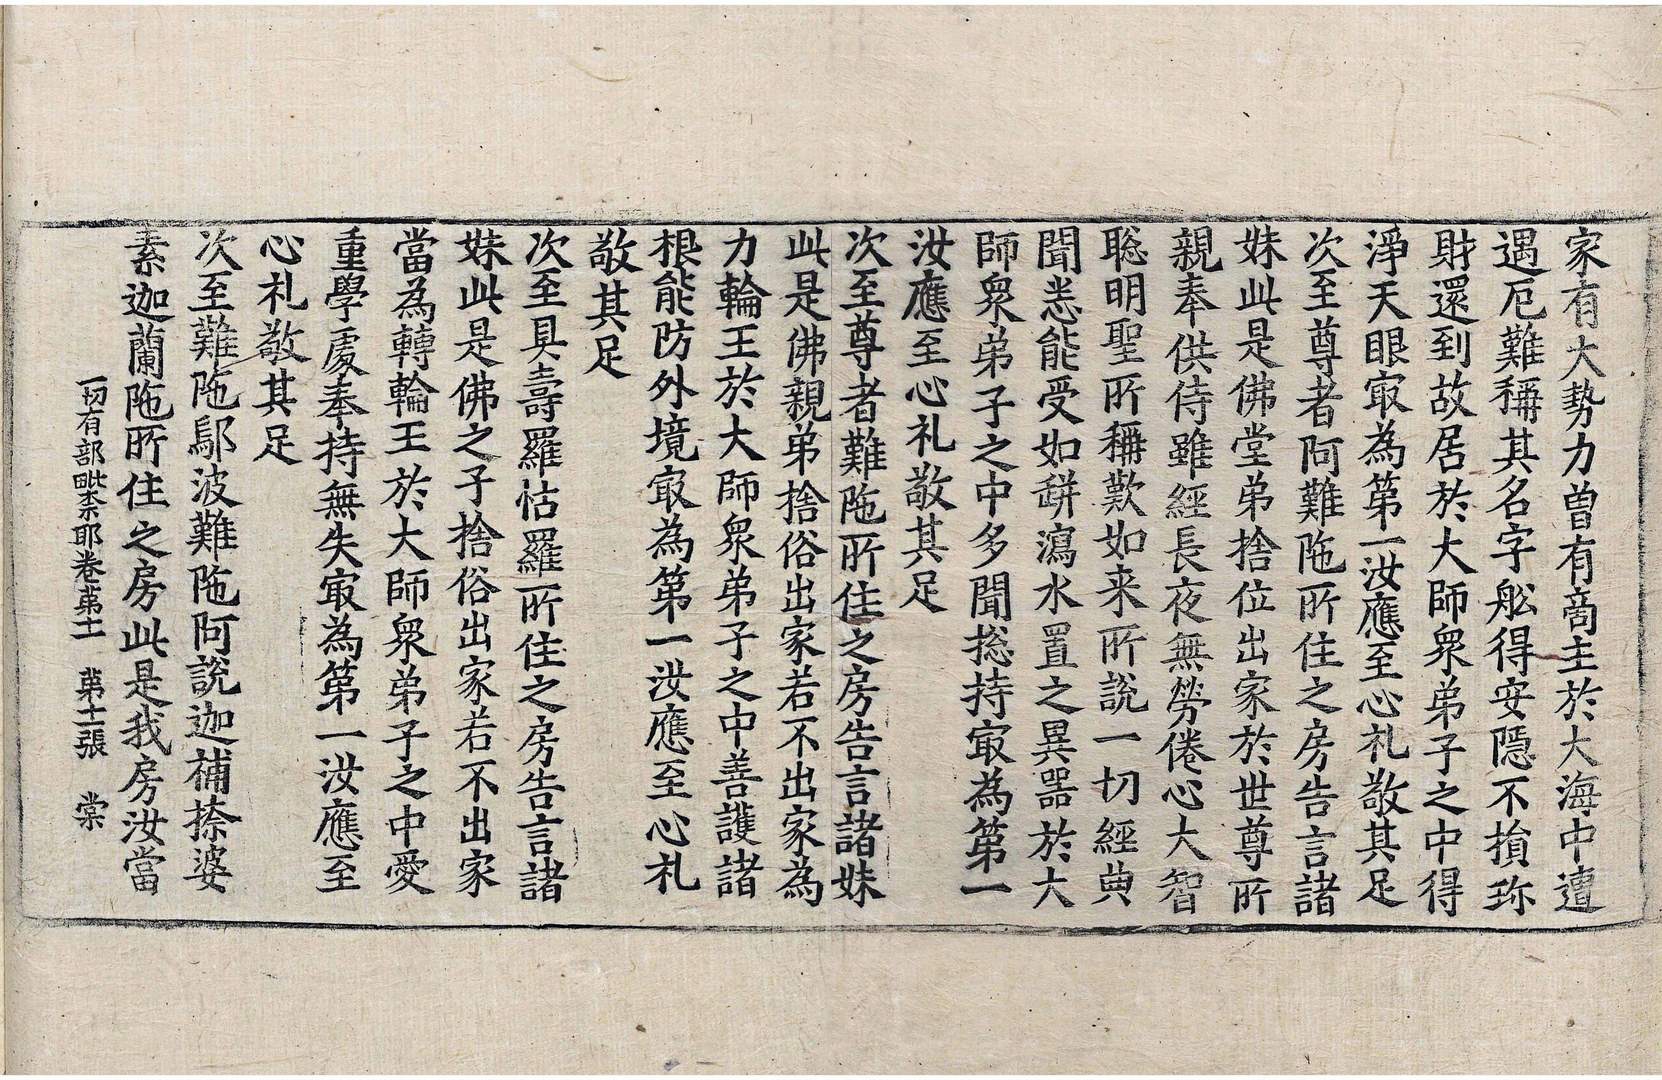 家有大勢力曾有啇主於大海中遭
遇厄難稱其名字舩得安隱不損珎
財還到故居於大師衆弟子之中得
淨天眼㝡為第一汝應至心礼敬其足
次至尊者阿難陁所住之房告言諸
妹此是佛堂弟捨位出家於世尊所
親奉供侍雖經長夜無勞倦心大智
聡明聖所稱歎如来所說一切經典
聞悉能受如缾瀉水置之異器於大
師衆弟子之中多聞揔持㝡為第一
汝應至心礼敬其足
次至尊者難陁所住之房告言諸妹
此是佛親弟捨俗出家若不出家為
力輪王於大師衆弟子之中善護諸
根能防外境㝡為第一汝應至心礼
敬其足
次至具壽羅怙羅所住之房告言諸
妹此是佛之子捨俗出家若不出家
當為轉輪王於大師衆弟子之中愛
重學處奉持無失㝡為第一汝應至
心礼敬其足
次至難陁鄔波難陁阿說迦補捺婆
素迦蘭陁所住之房此是我房汝當
一切有部毗柰耶卷苐十一　第十二張　棠